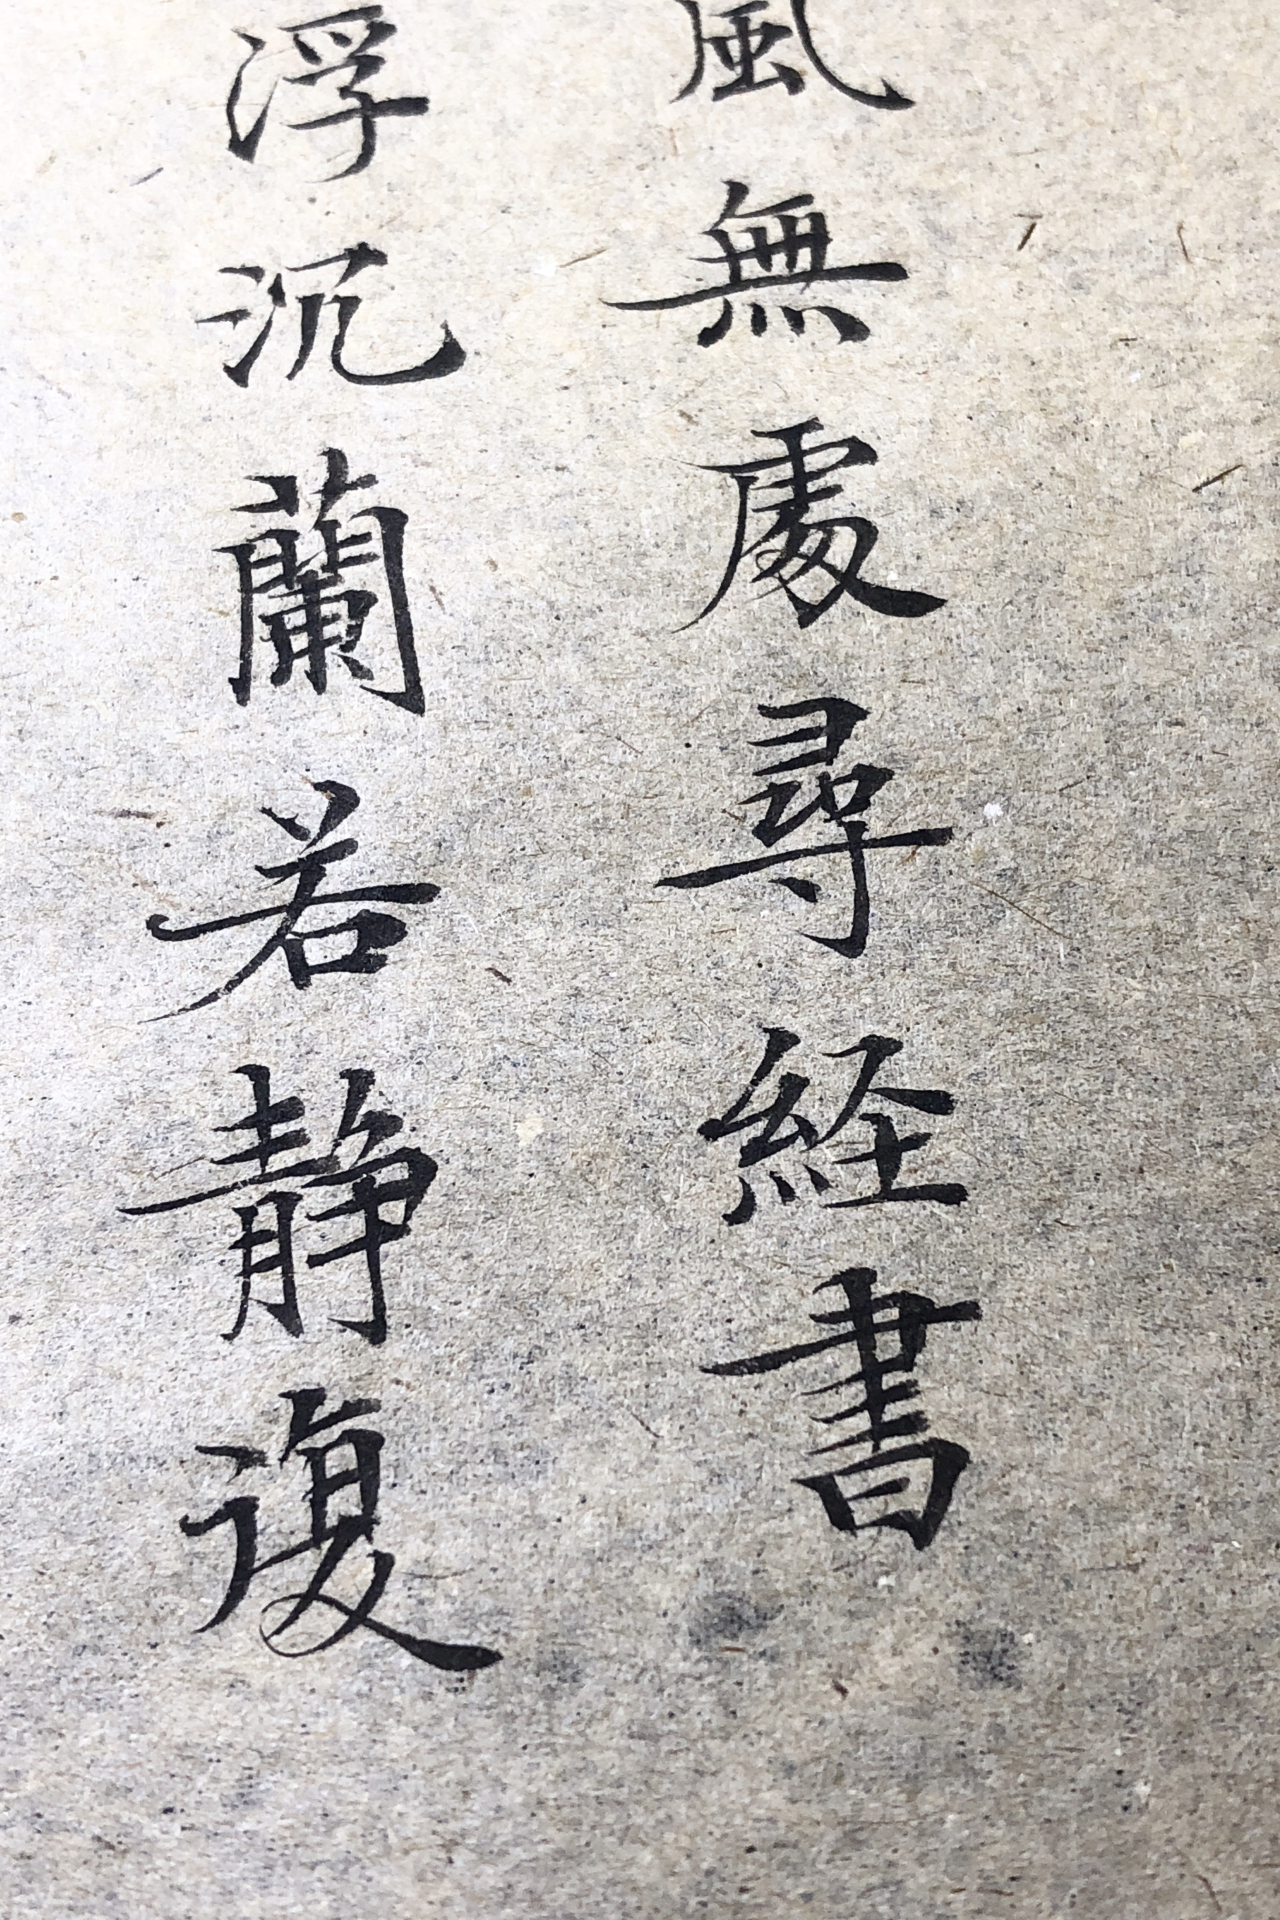 風無處尋経書
浮沉蘭若靜復